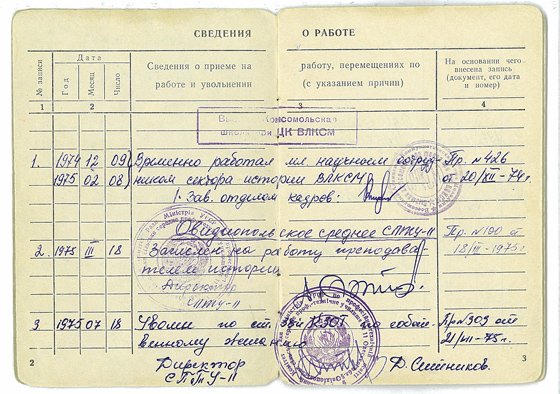 СВЕДЕНИЯ О РАБОТЕ
№ записи
Дата
Год
Месяц
Число
Сведения о приеме на
работе и увольнении
работу, перемещениях по
(с указанием причин)
На основании чего
внесена запись
(документ, его дата
и номер)
1 2 3 4
Комсомольская
школа при ЦК ВЛКСМ
1. 1974 12 09 Временно работал мл. научным сотруд- Пр. № 426
1975 02 08 ником сектора истории ВЛКСМ от 20/XII-74г.
Зав. отделом кадров:
Овидиопольское среднее СПТУ-11 Пр. № 190 от
2. 1975 III 18 Зачислен на работу преподава- 18/III-1975г
телем истории
Директор
СПТУ-11
3 1975 07 18 Уволен по ст. КЗОТ по собст- Пр № 303 от
венному желанию 21/VII-75г.
Директор
СПТУ-11
2 3